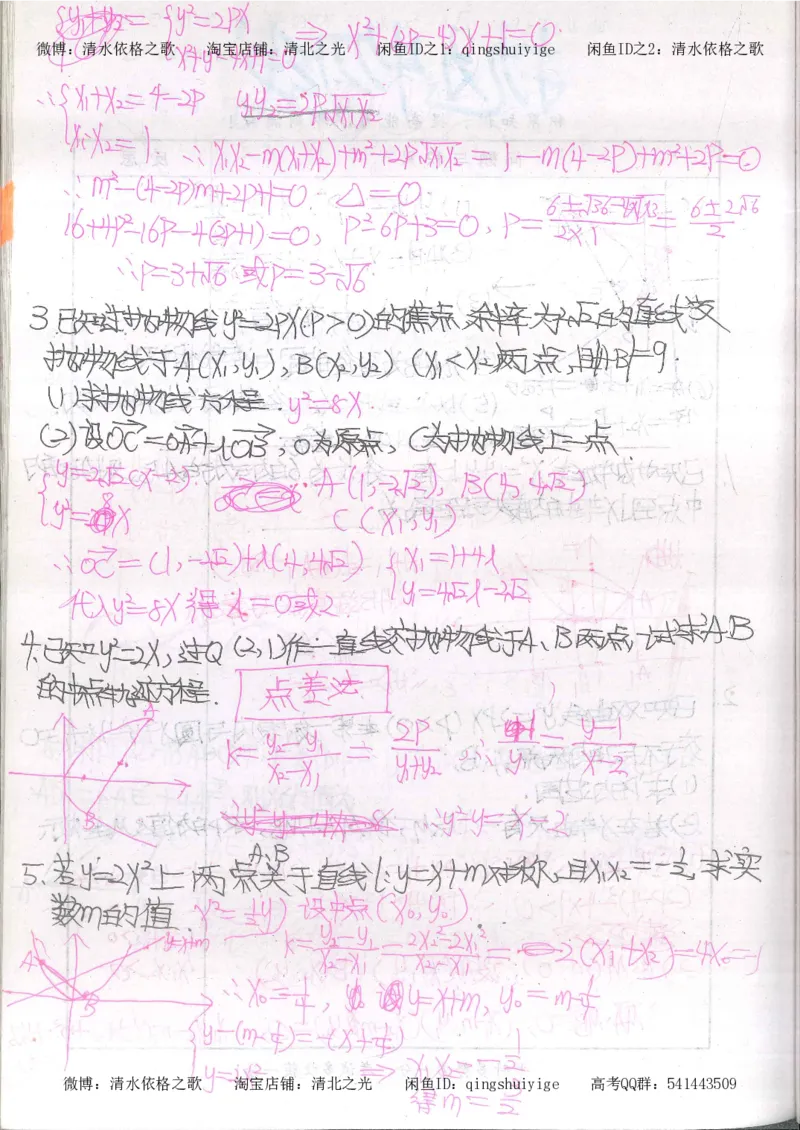 y²=2px ⇒ x²+(2p-4)x+1=0
微博：清水依格之歌 淘宝店铺：清北之光 闲鱼ID之1：qingshuiyige 闲鱼ID之2：清水依格之歌
∴{x₁+x₂=4-2p y₁y₂=2p√x₁x₂
x₁x₂=1 ∴x₁x₂-m(x₁+x₂)+m²+2p√x₁x₂=1-m(4-2p)+m²+2p=0
∴m²-(4-2p)m+2p+1=0. △=0.
16+4p²-16p-4(2p+1)=0, p²-6p+3=0, p= = 6±2√6/2
∴p=3+√6 或p=3-√6.
3.已知过抛物线y²=2px(p>0)的焦点,斜率为2√2的直线交
抛物线于A(x₁,y₁),B(x₂,y₂) (x₁<x₂)两点,且|AB|=9.
(1)求抛物线方程. y²=8x.
(2)设OC=OA+λOB,O为原点,C为抛物线上一点.
{y=2√2(x-2) ∴A(1,-2√2), B(4,4√2)
y²=8x C(x₁,y₁)
∴OC=(1,-2√2)+λ(4,4√2) {x₁=1+4λ
y=4√2λ-2√2
代入y²=8x得 λ=0或2.
4.已知y²=2x,过Q(2,1)作一直线交抛物线于A、B两点,试求A.B
的中点轨迹方程. 点差法
A
k=y₂-y₁/x₂-x₁=2p/y₁+y₂ ∴1/y=y-1/x-2
B
∴y²-y=x-2
A,B
5.若y=2x²上两点关于直线l:y=x+m对称,且x₁x₂=-1/2,求实
数m的值. x²=1/2y) 设中点(x₀,y₀).
y=x+m
A B
k=y₂-y₁/x₂-x₁=2x₂²-2x₁²/x₂-x₁=2(x₁+x₂)=4x₀=-1
∴x₀=-1/4, y=x+m, y₀=m-1/4
{y-(m-1/4)=-(x+1/4)
y=2x² ⇒ x₁x₂=-1/2
得m=3/2
微博：清水依格之歌 淘宝店铺：清北之光 闲鱼ID：qingshuiyige 高考QQ群：541443509